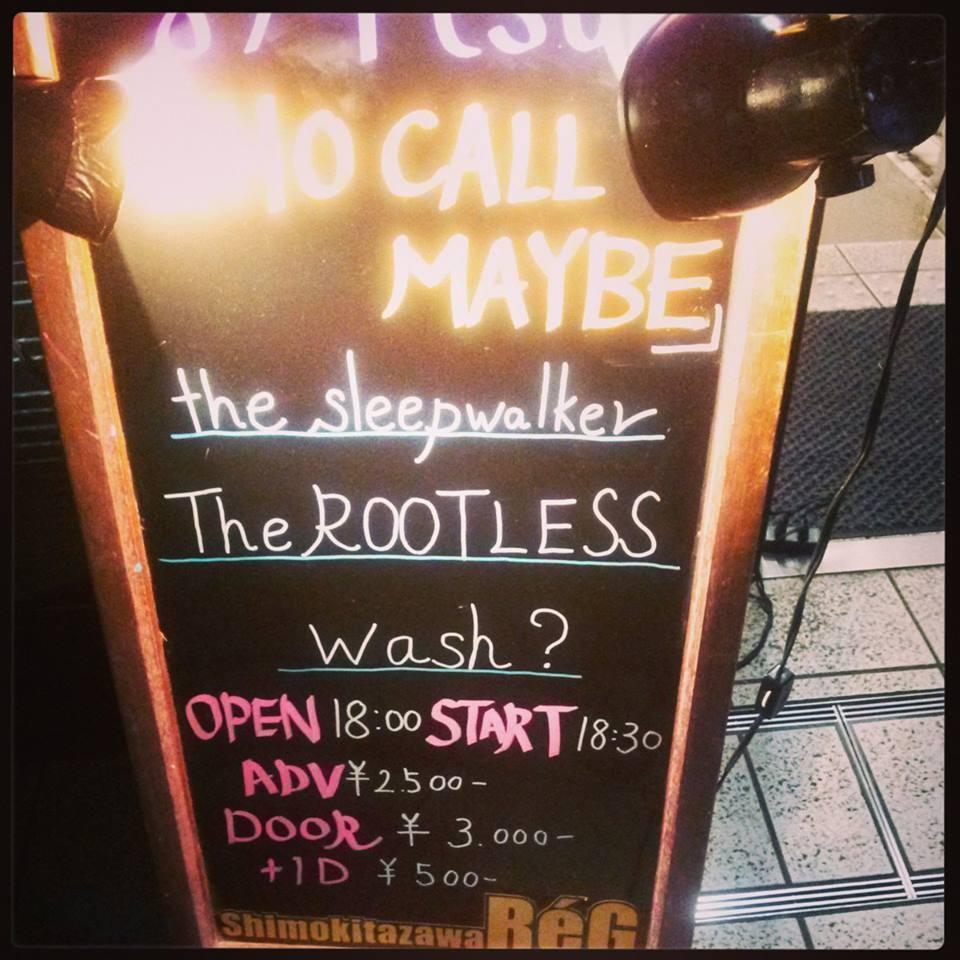 CALL
MAYBE」
the sleepwalker
The ROOTLESS
wash?
OPEN 18:00 START 18:30
ADV ¥2.500-
DOOR ¥ 3.000-
+1D ¥500-
Shimokitazawa RéG